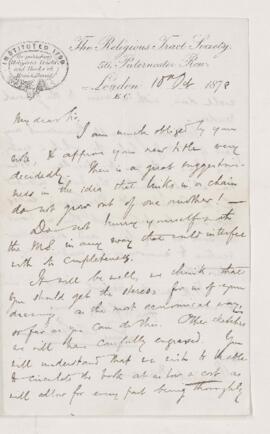 INSTITUTED 1799
The Religious Tract Society.
56, Paternoster Row,
London 10 1878
E.C.
My dear Sir,
I am much obliged by your
note, & approve your new title very
decidedly. There is a great suggestive-
ness in the idea that links in a chain
do not grow out of one another! —
Do not hurry yourself with
the MS. in any way that would interfere
with its completeness.
It will be well, we think, that
you should get the
in the most economical way,
so far as you can do this. Other sketches
we will have carefully engraved. You
will understand that we wish to be able
to circulate the book at as low a cost as
will allow for every part being thoroughly